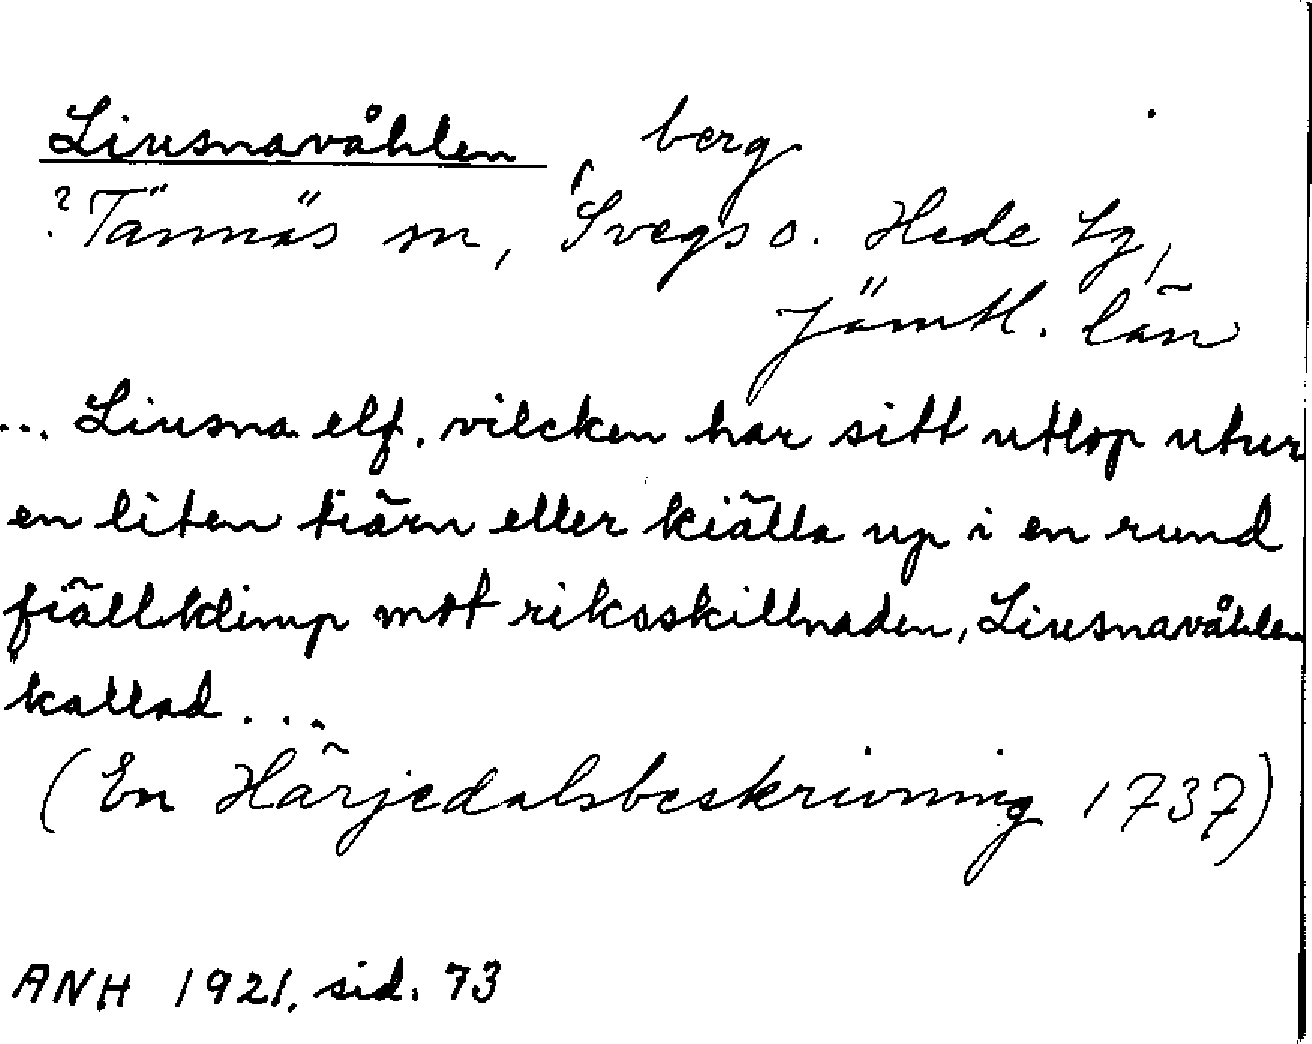 Liusnavåhlen, berg
? Tännäs sn, Svegs o. Hede tg,
Jämtl. län
... Liusna elf, vilcken har sitt utlop utur
en liten tiärn eller kiälla up i en rund
fiällklimp mot riksskillnaden, Liusnavåhlen
kallad...
(En Härjedalsbeskrivning 1737)
ANH 1921, sid. 73